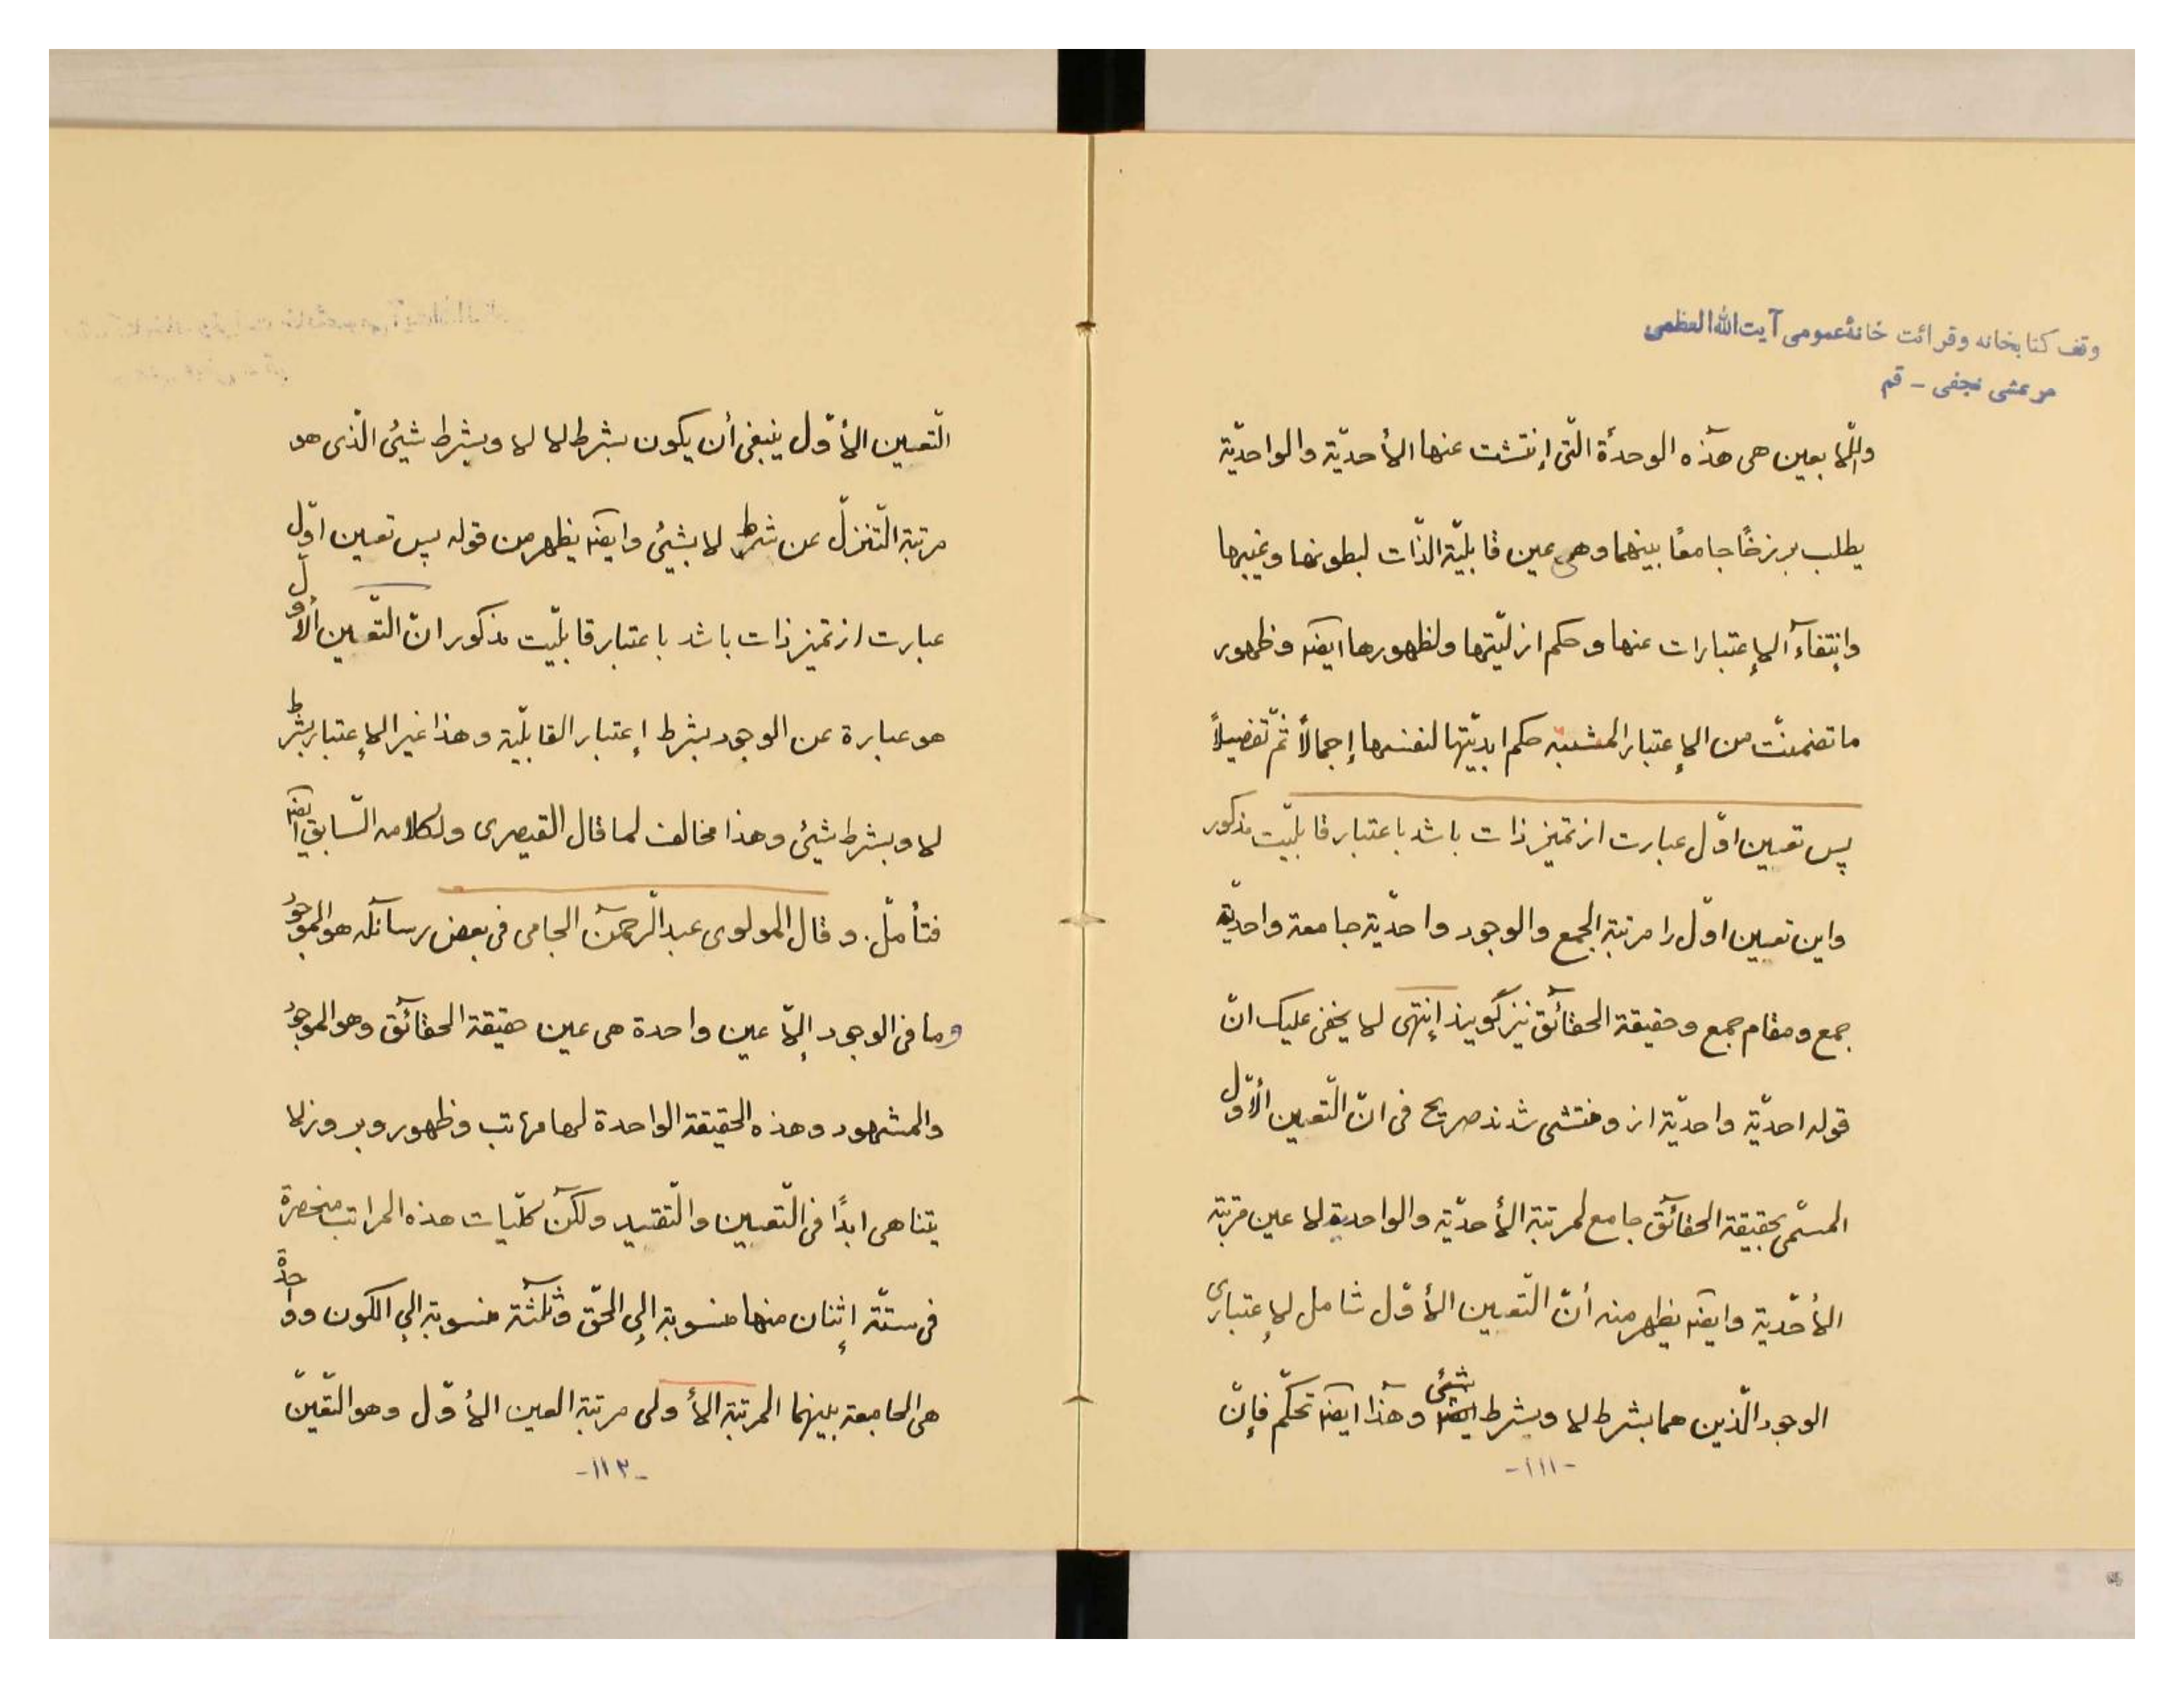 وقف کتابخانه وقرائت خانهٔ عمومی آیت الله العظمی
مرعشی نجفی - قم
واللّا بعین هی هذه الوحدة الّتی إنتشت عنها الأحدیّة والواحدیّة
یطلب برزخًا جامعًا بینهما وهی عین قابلیّة الذّات لبطونها وغیبها
وإنتفاء الإعتبارات عنها وحکم ازلیّتها ولظهورها ایضا وظهور
ما تضمنّت من الإعتبار المشبته حکم ابدیّتها لنفسها إجمالاً ثمّ تفصیلاً
پس تعین اوّل عبارت از تمیز ذات باشد باعتبار قابلیّت مذکور
واین تعین اوّل را مرتبة الجمع والوجود واحدیّة جامعة واحدیّة
جمع ومقام جمع وحقیقة الحقائق نیز گویند إنتهی لا یخفی علیک انّ
قوله احدیّة واحدیّة از و منتشی شدند صریح فی انّ التّعین الأوّل
المسمّی بحقیقة الحقائق جامع لمرتبة الأحدیّة والواحدیة لا عین مرتبة
الأحدّیة وایضا یظهر منه أنّ التّعین الأوّل شامل لإعتباری
الوجود الّذین هما بشرط لا وبشرط شیئ وهذا ایضا تحکّم فإنّ
-۱۱۱-
التّعین الأوّل ینبغی أن یکون بشرط لا لا وبشرط شیئ الّذی هو
مرتبة التّنزّل عن شرط لا بشیئ وایضا یظهر من قوله پس تعین اوّل
عبارت از تمیز ذات باشد باعتبار قابلیّت مذکور انّ التّعین الأوّل
هو عبارة عن الوجود بشرط إعتبار القابلیّة وهذا غیر الإعتبار بشرط
لا وبشرط شیئ وهذا مخالف لما قال القیصری ولکلامه السّابق ایضا
فتأمّل. وقال المولوی عبد الرّحمن الجامی فی بعض رسائله هو الموجود
وما فی الوجود إلاّ عین واحدة هی عین حقیقة الحقائق وهو الموجود
والمشهود وهذه الحقیقة الواحدة لها مراتب وظهور وبروز لا
یتناهی ابدًا فی التّعین والتّقید ولکن کلّیات هذه المراتب منحصرة
فی ستّة إثنان منها منسوبة إلی الحقّ وثلثة منسوبة إلی الکون وواحدة
هی الجامعة بینهما المرتبة الأولی مرتبة العین الأوّل وهو التّعیّن
-۱۱۲-